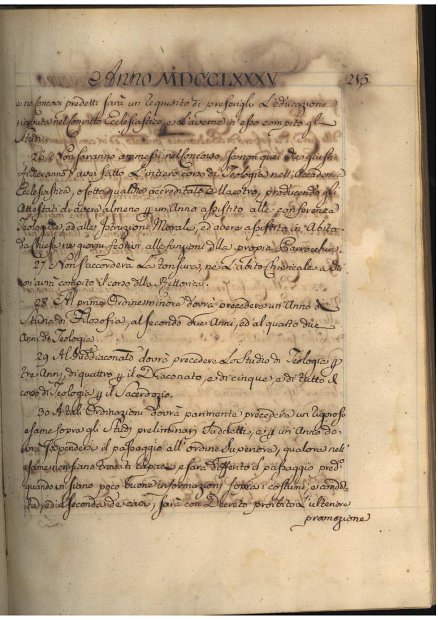 Anno MDCCLXXXV 215
ne' concorsi predetti sarà un requisito di preferirgli l'educazione
ricevuta nel convitto Ecclesiastico, e l'avere in esso compito gli
Studi.
26 Non saranno ammessi nel concorso, se non quei che giusti-
ficheranno d'aver fatto l'intero corso di Teologia nell'Accademia
Ecclesiastica, o sotto qualche accreditato Maestro, producendo gli
Attestati di avere almeno p un Anno assistito alle conferenze
Teologiche, ed alle Istruzioni Morali, ed avere assistito in Abito
da Chiesa ne giorni festivi alle funzioni della propria Parrocchia.
27 Non s'accorderà la tonsura, nè l'abito chiericale a chi
non avrà compito il corso della Rettorica.
28 Al primo Ordine minore dovrà precedere un'Anno di
Studio di Filosofia, al secondo due Anni, ed al quarto due
Anni di Teologia.
29 Al Suddiaconato dovrà precedere lo Studio di Teologia p
tre Anni, di quattro p il Diaconato, e di cinque, e di tutto il
corso di Teologia p il Sacerdozio.
30 A dette Ordinazioni dovrà parimente precedere un rigoroso
esame sopra gli Studj preliminari suddetti, e p un Anno do-
vrà sospendersi il passaggio all'ordine Superiore, qualora nell'
esame non siano trovati capaci, e sarà differito il passaggio pred.
quando vi siano poco buone informazioni sopra i costumi, e condot-
ta, ed a seconda de casi, sarà con Decreto proibita l'ulteriore
promozione